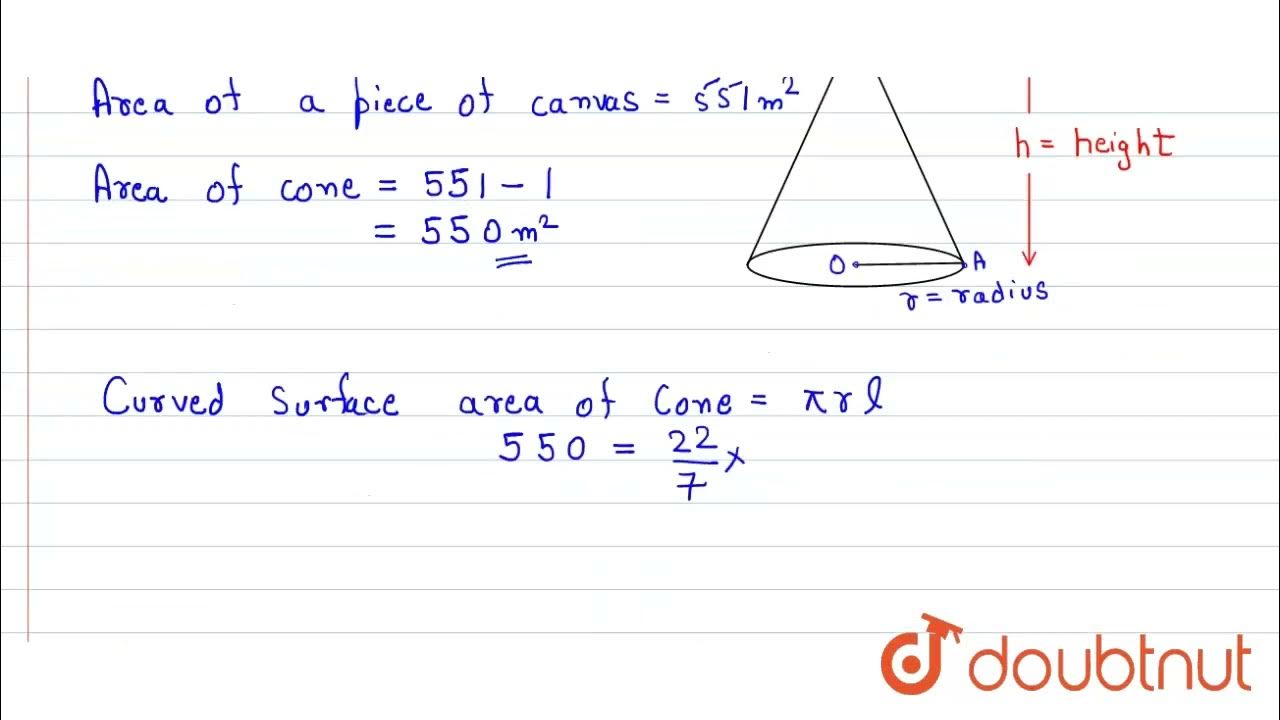 Area of a piece of canvas = 551 m²
Area of cone = 551 - 1
= 550 m²
h = height
O
A
r = radius
Curved Surface area of Cone = πrl
550 = 22/7 ×
doubtnut